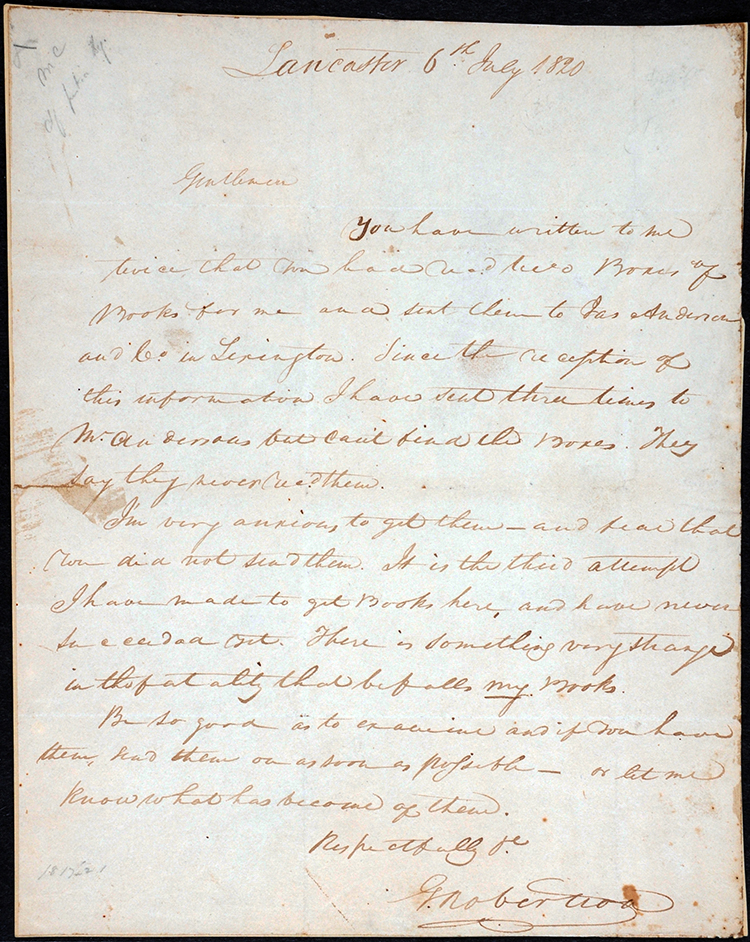 Lancaster 6th July 1820
Gentlemen
You have written to me
twice that you had recd two Boxes of
Books for me and sent them to Jas Anderson
and Co in Lexington. Since the reception of
this information I have sent three times to
Mr Andersons but cant find the Boxes. They
say they never recd them.
I'm very anxious to get them – and fear that
you did not send them. It is the third attempt
I have made to get Books here, and have never
succeeded yet. There is something very strange
in the fatality that befalls my Books.
Be so good as to examine and if you have
them, send them on as soon as possible – or let me
know what has become of them.
Respectfully &c
G. Robertson